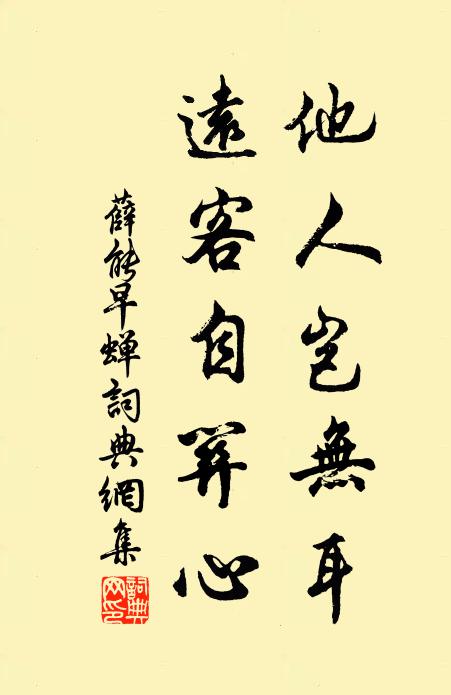 他人豈無耳
遠客自關心
薛能早蟬詞典網集
詞典网印